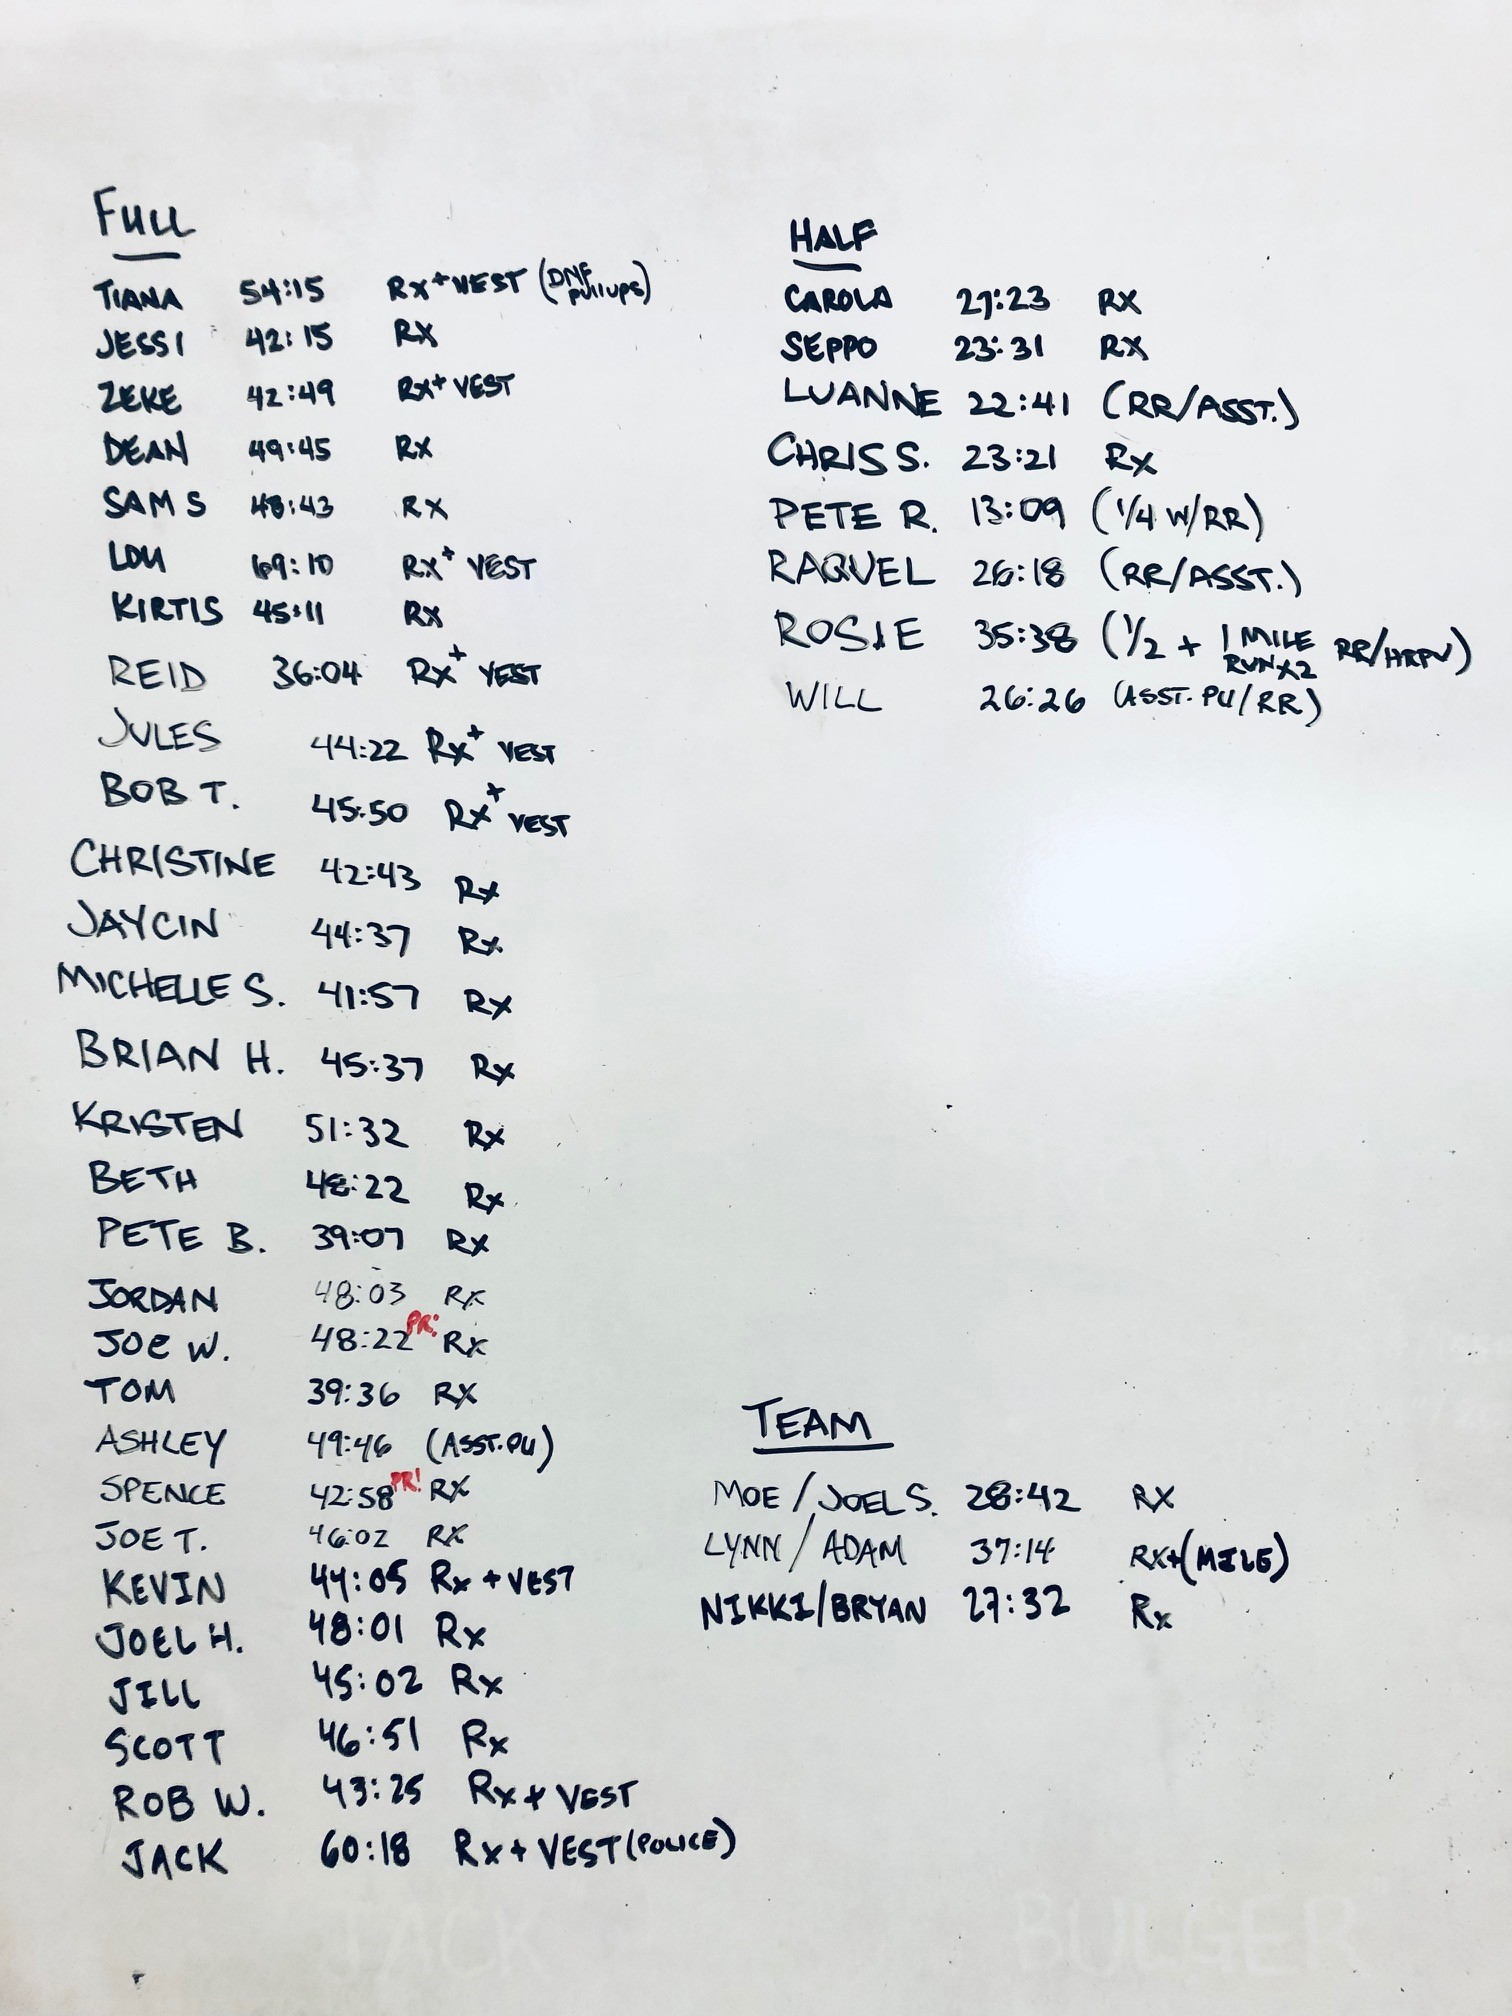 FULL
TIANA 54:15 RX+VEST (DNF PULLUPS)
JESSI 42:15 RX
ZEKE 42:49 RX+ VEST
DEAN 49:45 RX
SAM S 48:43 RX
LOU 69:10 RX+ VEST
KIRTIS 45:11 RX
REID 36:04 RX+ VEST
JULES 44:22 RX+ VEST
BOB T. 45:50 RX+ VEST
CHRISTINE 42:43 Rx
JAYCIN 44:37 Rx
MICHELLE S. 41:57 Rx
BRIAN H. 45:37 Rx
KRISTEN 51:32 Rx
BETH 48:22 Rx
PETE B. 39:07 Rx
JORDAN 48:03 Rx
JOE W. 48:22 PR! Rx
TOM 39:36 RX
ASHLEY 49:46 (ASST. PU)
SPENCE 42:58 PR! RX
JOE T. 46:02 RX
KEVIN 44:05 Rx + VEST
JOEL H. 48:01 Rx
JILL 45:02 Rx
SCOTT 46:51 Rx
ROB W. 43:25 Rx + VEST
JACK 60:18 Rx + VEST (POLICE)
HALF
CAROLA 27:23 RX
SEPPO 23:31 RX
LUANNE 22:41 (RR/ASST.)
CHRIS S. 23:21 Rx
PETE R. 13:09 (1/4 W/RR)
RAQUEL 26:18 (RR/ASST.)
ROSIE 35:38 (1/2 + 1 MILE RUN X2 RR/HRPU)
WILL 26:26 (ASST. PU/RR)
TEAM
MOE / JOEL S. 28:42 RX
LYNN / ADAM 37:14 RX+(MILE)
NIKKI/BRYAN 27:32 Rx
JACK BULGER